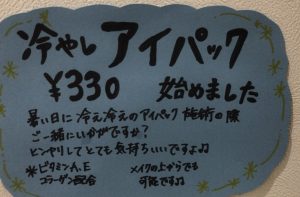 冷やし アイパック
¥330 始めました
暑い日に冷え冷えのアイパック 施術の際
ご一緒にいかがですか?
ヒンヤリしてとても気持ちいいですよ♪
*ビタミンA、E メイクの上からでも
コラーゲン配合 可能です♪